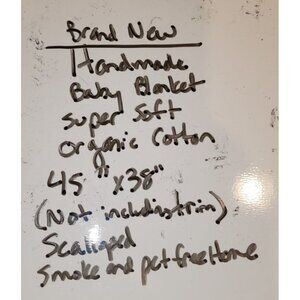 Brand New
Handmade
Baby Blanket
super soft
organic Cotton
45" x 38"
(Not including trim)
Scalloped
Smoke and pet free Home